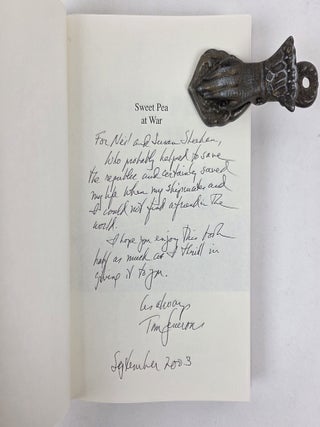 Sweet Pea
at War
For Neil and Susan Sheehan,
Who probably helped to save
the republic and certainly saved
my life when my shipmates and
I could not find a friend in the
world.
I hope you enjoy this book
half as much as I thrill in
giving it to you.
As always
Tom
September 2003